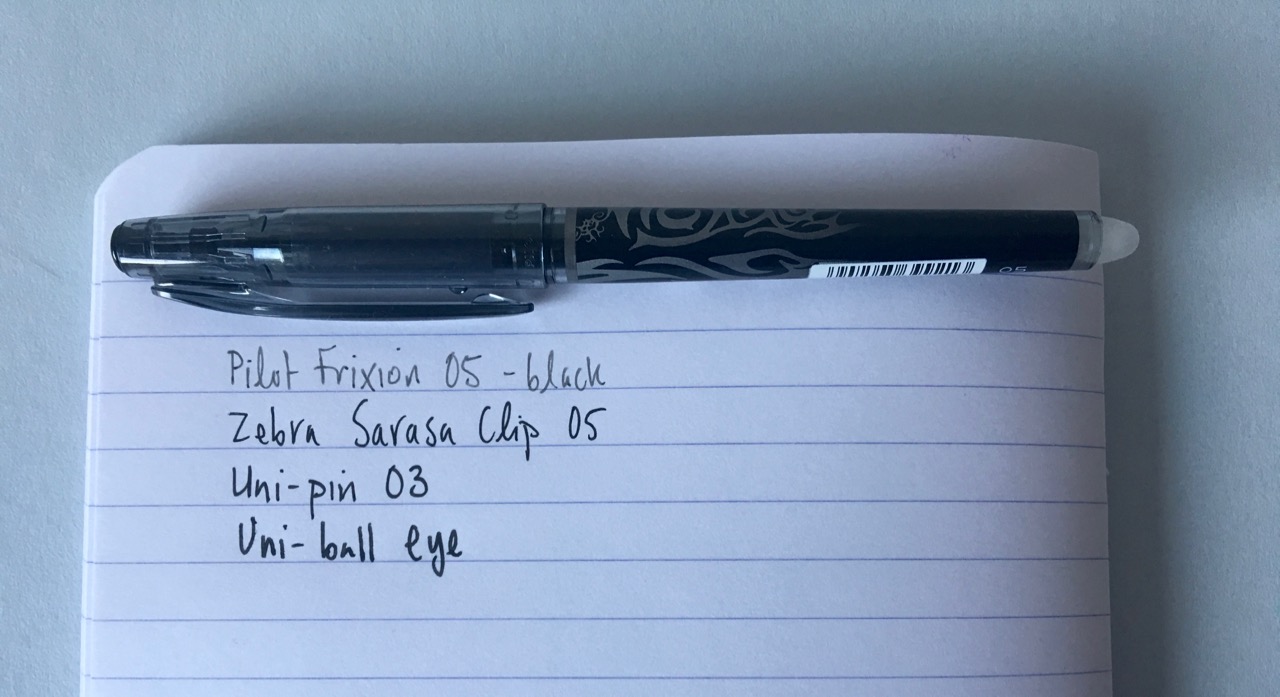 05
Pilot Frixion 05 - black
Zebra Sarasa Clip 05
Uni-pin 03
Uni-ball eye